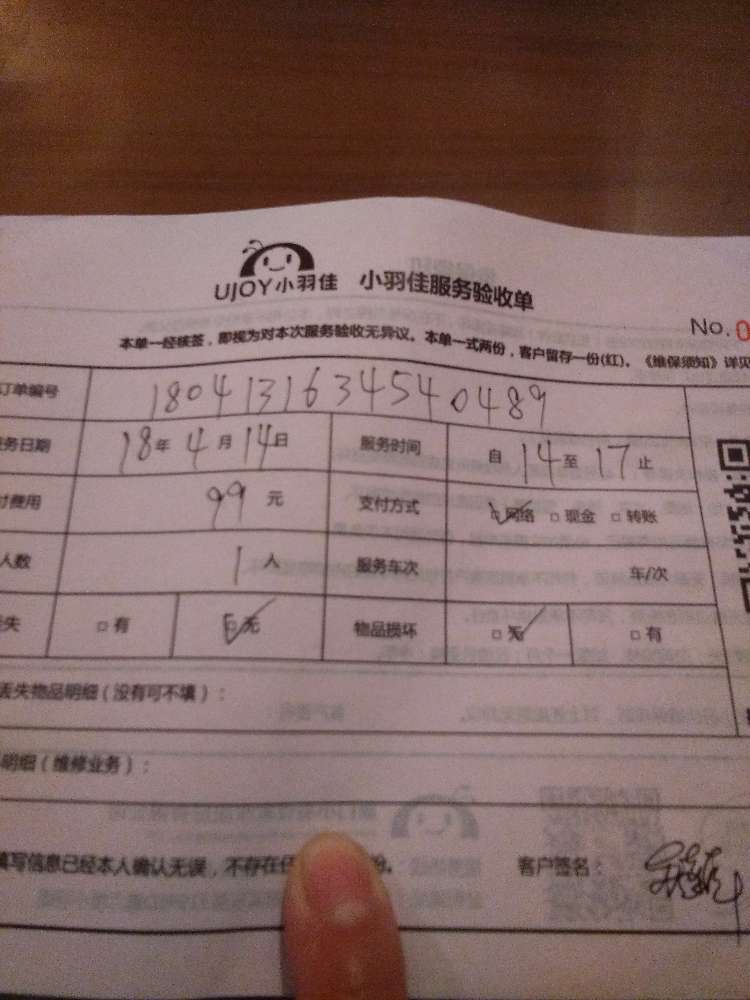 UJOY小羽佳 小羽佳服务验收单
No. 0
本单一经核签，即视为对本次服务验收无异议。本单一式两份，客户留存一份(红)。《维保须知》详见
订单编号 180413163454 0489
务日期 18年 4月 14日 服务时间 自 14 至 17 止
付费用 99 元 支付方式 □网络 □现金 □转账
人数 1 人 服务车次 车/次
失 □有 □无 物品损坏 □无 □有
丢失物品明细（没有可不填）：
明细（维修业务）：
填写信息已经本人确认无误，不存在任 份。 客户签名：